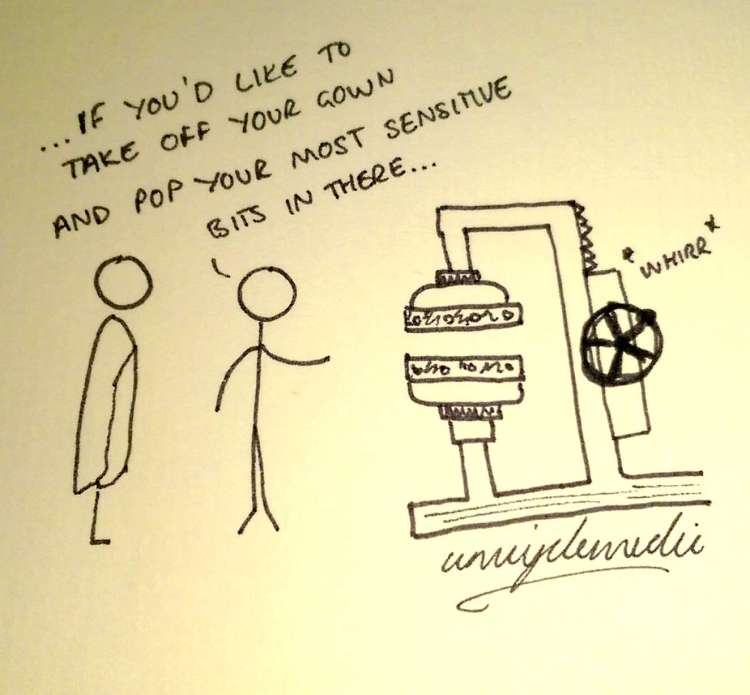 ...IF YOU'D LIKE TO
TAKE OFF YOUR GOWN
AND POP YOUR MOST SENSITIVE
BITS IN THERE...
*WHIRR*
unicyclemedic